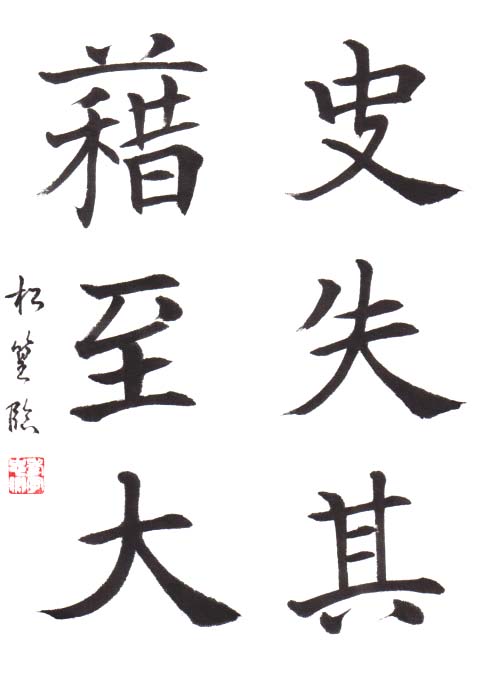 史失其
藉至大
松篁臨